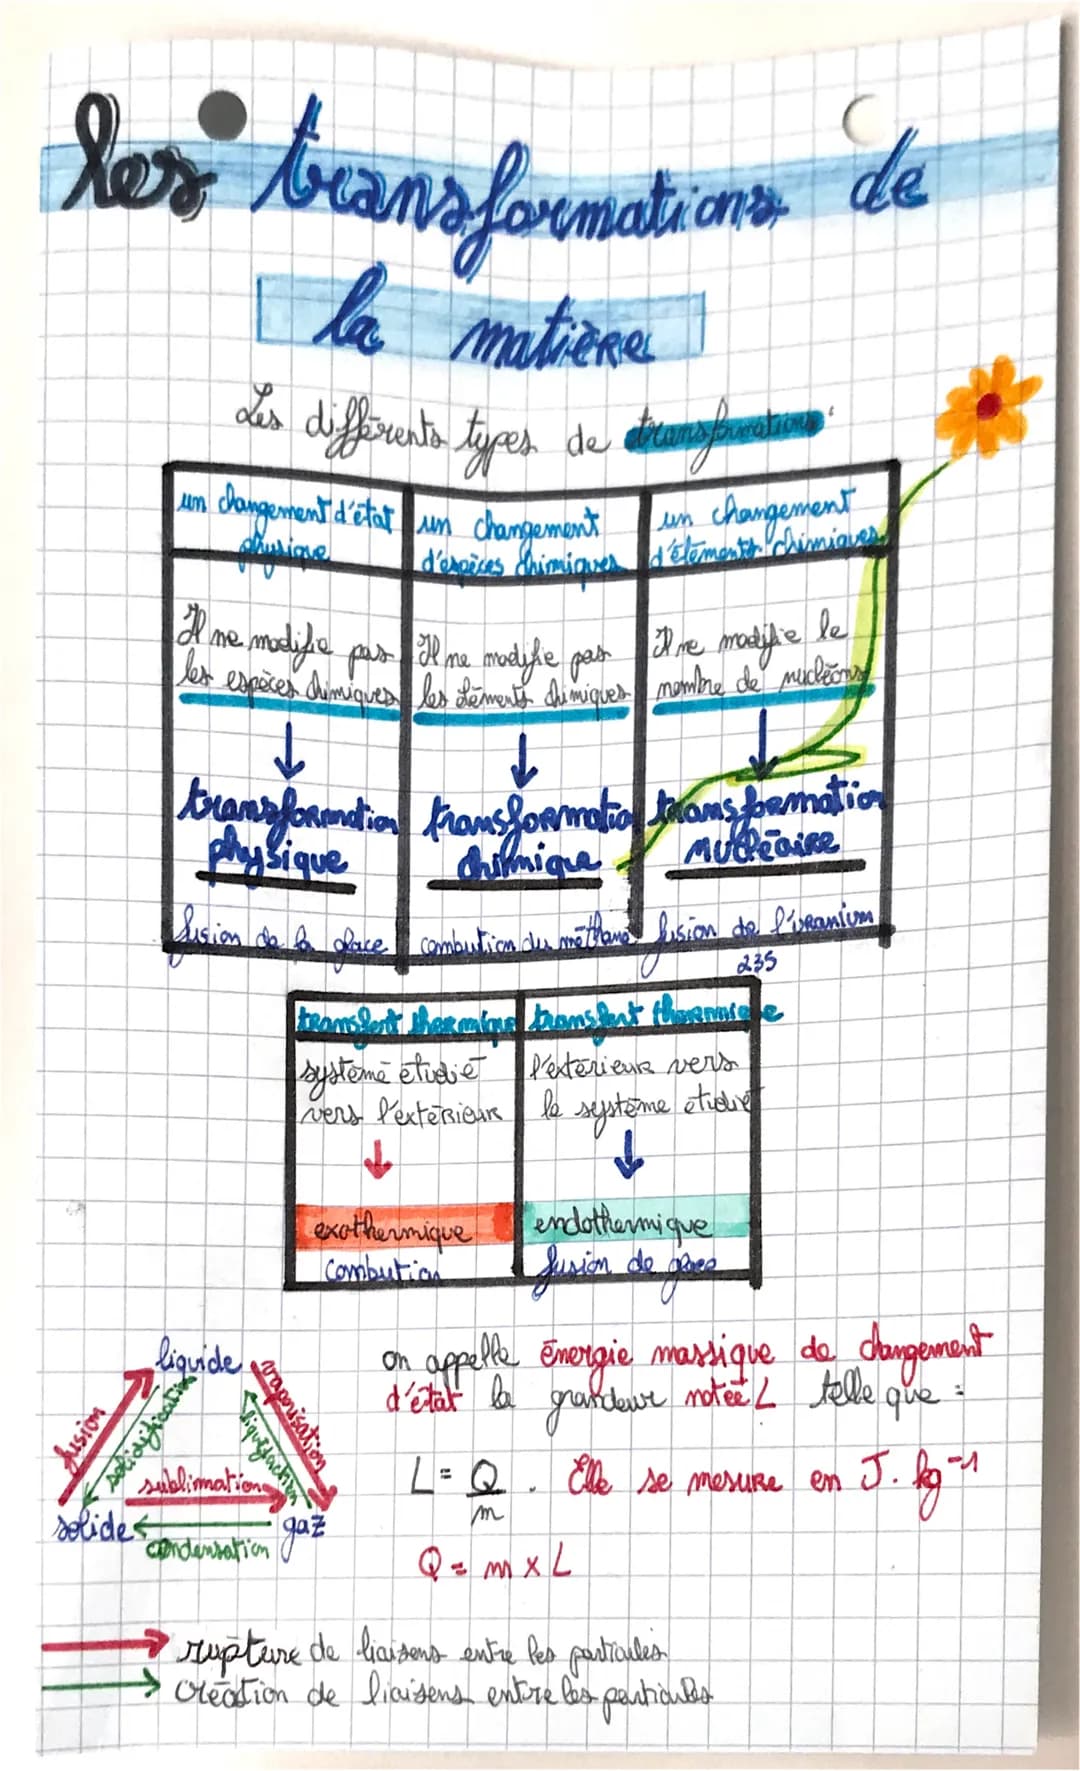 les transformations de
la matière
Les différents types de transformations
un changement d'état
physique
Il ne modifie pas
les espèces chimiques
↓
transformation
physique
fusion de la glace
un changement
d'espèces chimiques
Il ne modifie pas
les éléments chimiques
↓
transformation
chimique
combution du méthane
un changement
d'éléments chimiques
Il ne modifie le
nombre de nucléons
↓
transformation
nucléaire
fusion de l'uranium
235
transfert thermique
système étudié
vers l'extérieur
↓
exothermique
combution
transfert thermique
l'extérieur vers
le système étudié
↓
endothermique
fusion de glace
liquide
fusion
solidification
vaporisation
liquéfaction
sublimation
solide
gaz
condensation
on appelle énergie massique de changement
d'état la grandeur notée L telle que :
L = Q/m . Elle se mesure en J.kg⁻¹
Q = m x L
→ rupture de liaisons entre les particules
→ création de liaisons entre les particules